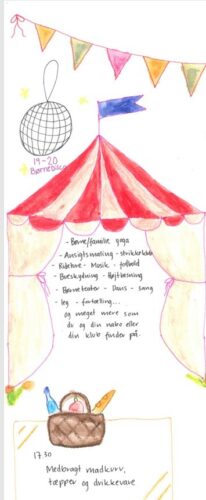 19-20
BørneDisco
- Børne/familie yoga
- Ansigtsmaling - strikkeklub
- Rideture - Musik - fodbold
- Bueskydning - Højtlæsning
- Børneteater - Dans - sang
- leg - fortælling...
og meget mere som
du og din nabo eller
din klub finder på.
17.30
Medbragt madkurv,
tæpper og drikkevare